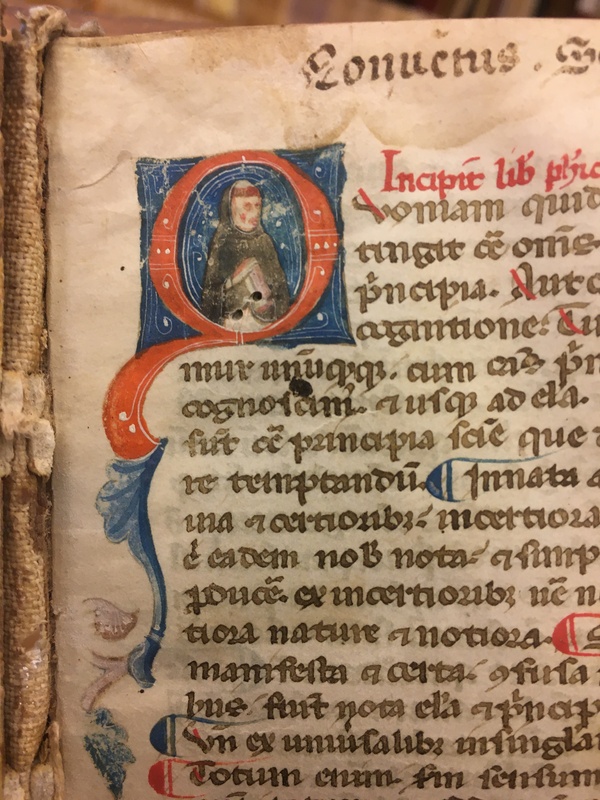 Conuẽtus . S
Incipit lib̄ phic
Qvoniam quid
tingit cẽ om̃s
p̃ncipia. Aut c
cogintione: Tu
mur unũqqꝫ. cum eiꝰ p̃n
cognoscim̃. ⁊ usqꝫ ad ela.
sũt cẽ principia sciẽ que
re temptandũ. Innata
ina ⁊ certioribꝫ incertiora
ẽ eadem nob̃ nota ⁊ simp
ꝓducẽ. ex incertioribꝫ
tiora nature ⁊ notiora.
manifesta ⁊ certa. ꝯfusa
bus. fiũt nota ela ⁊ p̃ncip
Vn̄ ex uniũsalibꝫ in singla
Totum enim. scm̄ sensum